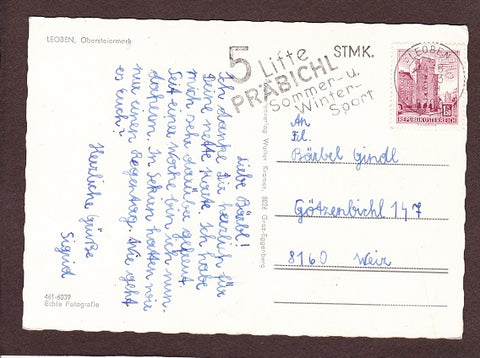 LEOBEN, Obersteiermark
5 Lifte
STMK.
PRÄBICHL
Sommer- u.
Winter-
Sport
LEOBEN
REPUBLIK ÖSTERREICH
Liebe Bärbl!
Ich danke Dir herzlich für
Deine nette Karte. Ich habe
mich sehr darüber gefreut.
Seit einer Woche bin ich nun
daheim. In Schun hatten wir
nur einen Regentag. Wie geht
es Euch?
Herzliche Grüße
Sigrid
461-6039
Echte Fotografie
Walter Kramer, 8020 Graz-Eggenberg
An
Frl.
Bärbel Gindl
Götzenbichl 147
8160 Weiz